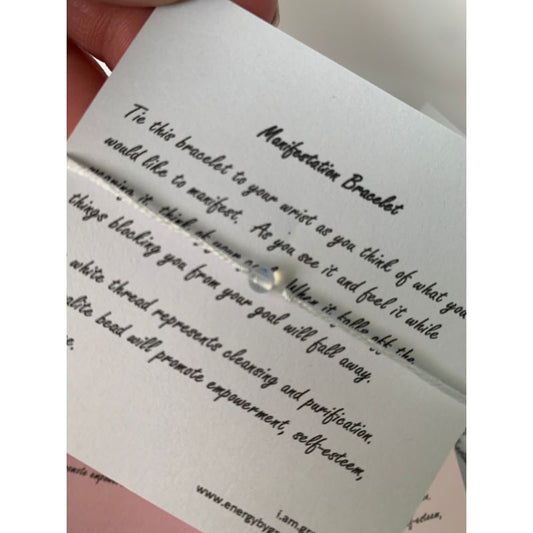 Manifestation Bracelet
Tie this bracelet to your wrist as you think of what you
would like to manifest. As you see it and feel it while
wearing it, think of your When it falls off the
things blocking you from your goal will fall away.
white thread represents cleansing and purification.
bead will promote empowerment, self-esteem,
i.am.gr
www.energybygr